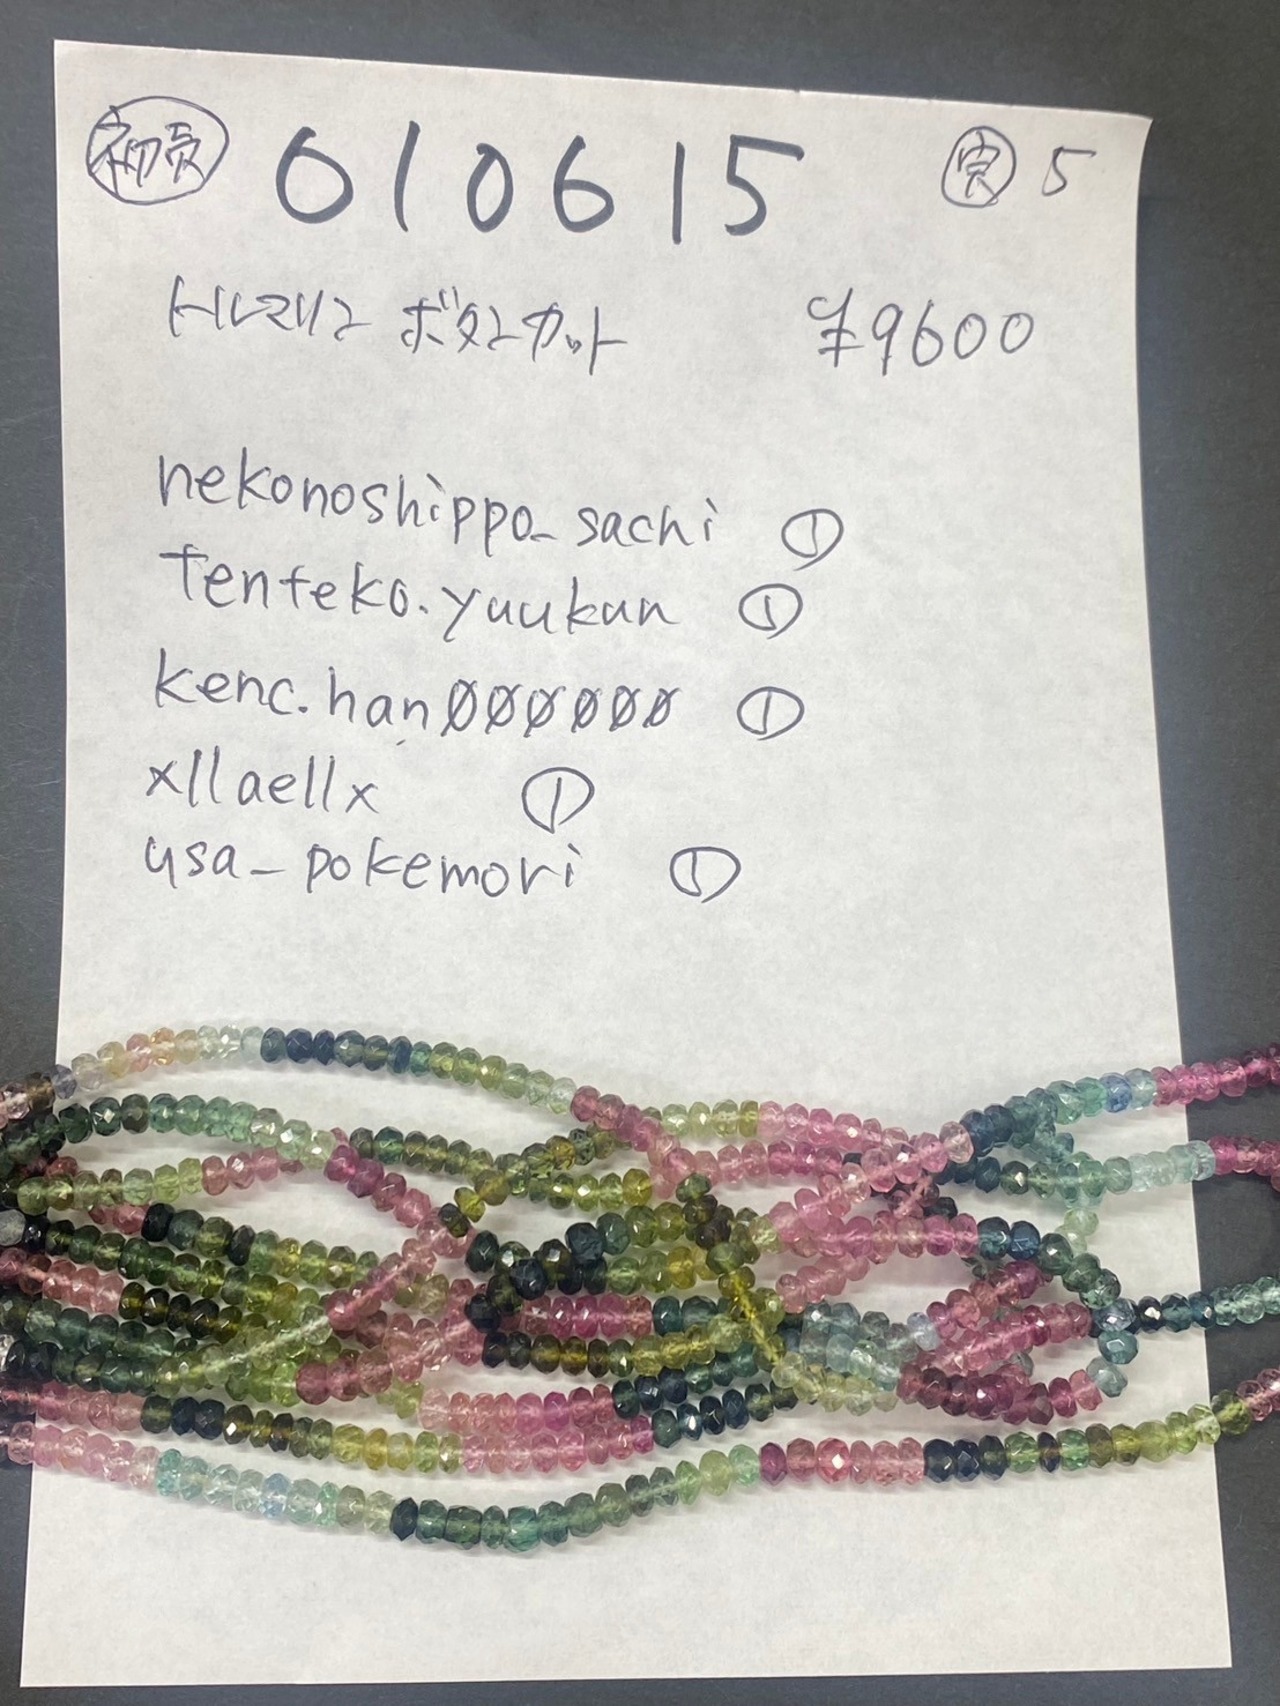 初売 010615 実 5
トルマリン ボタンカット ¥9600
nekonoshippo_sachi ①
Tenteko.yuukun ①
kenc.han000000 ①
xllaellx ①
usa_pokemori ①